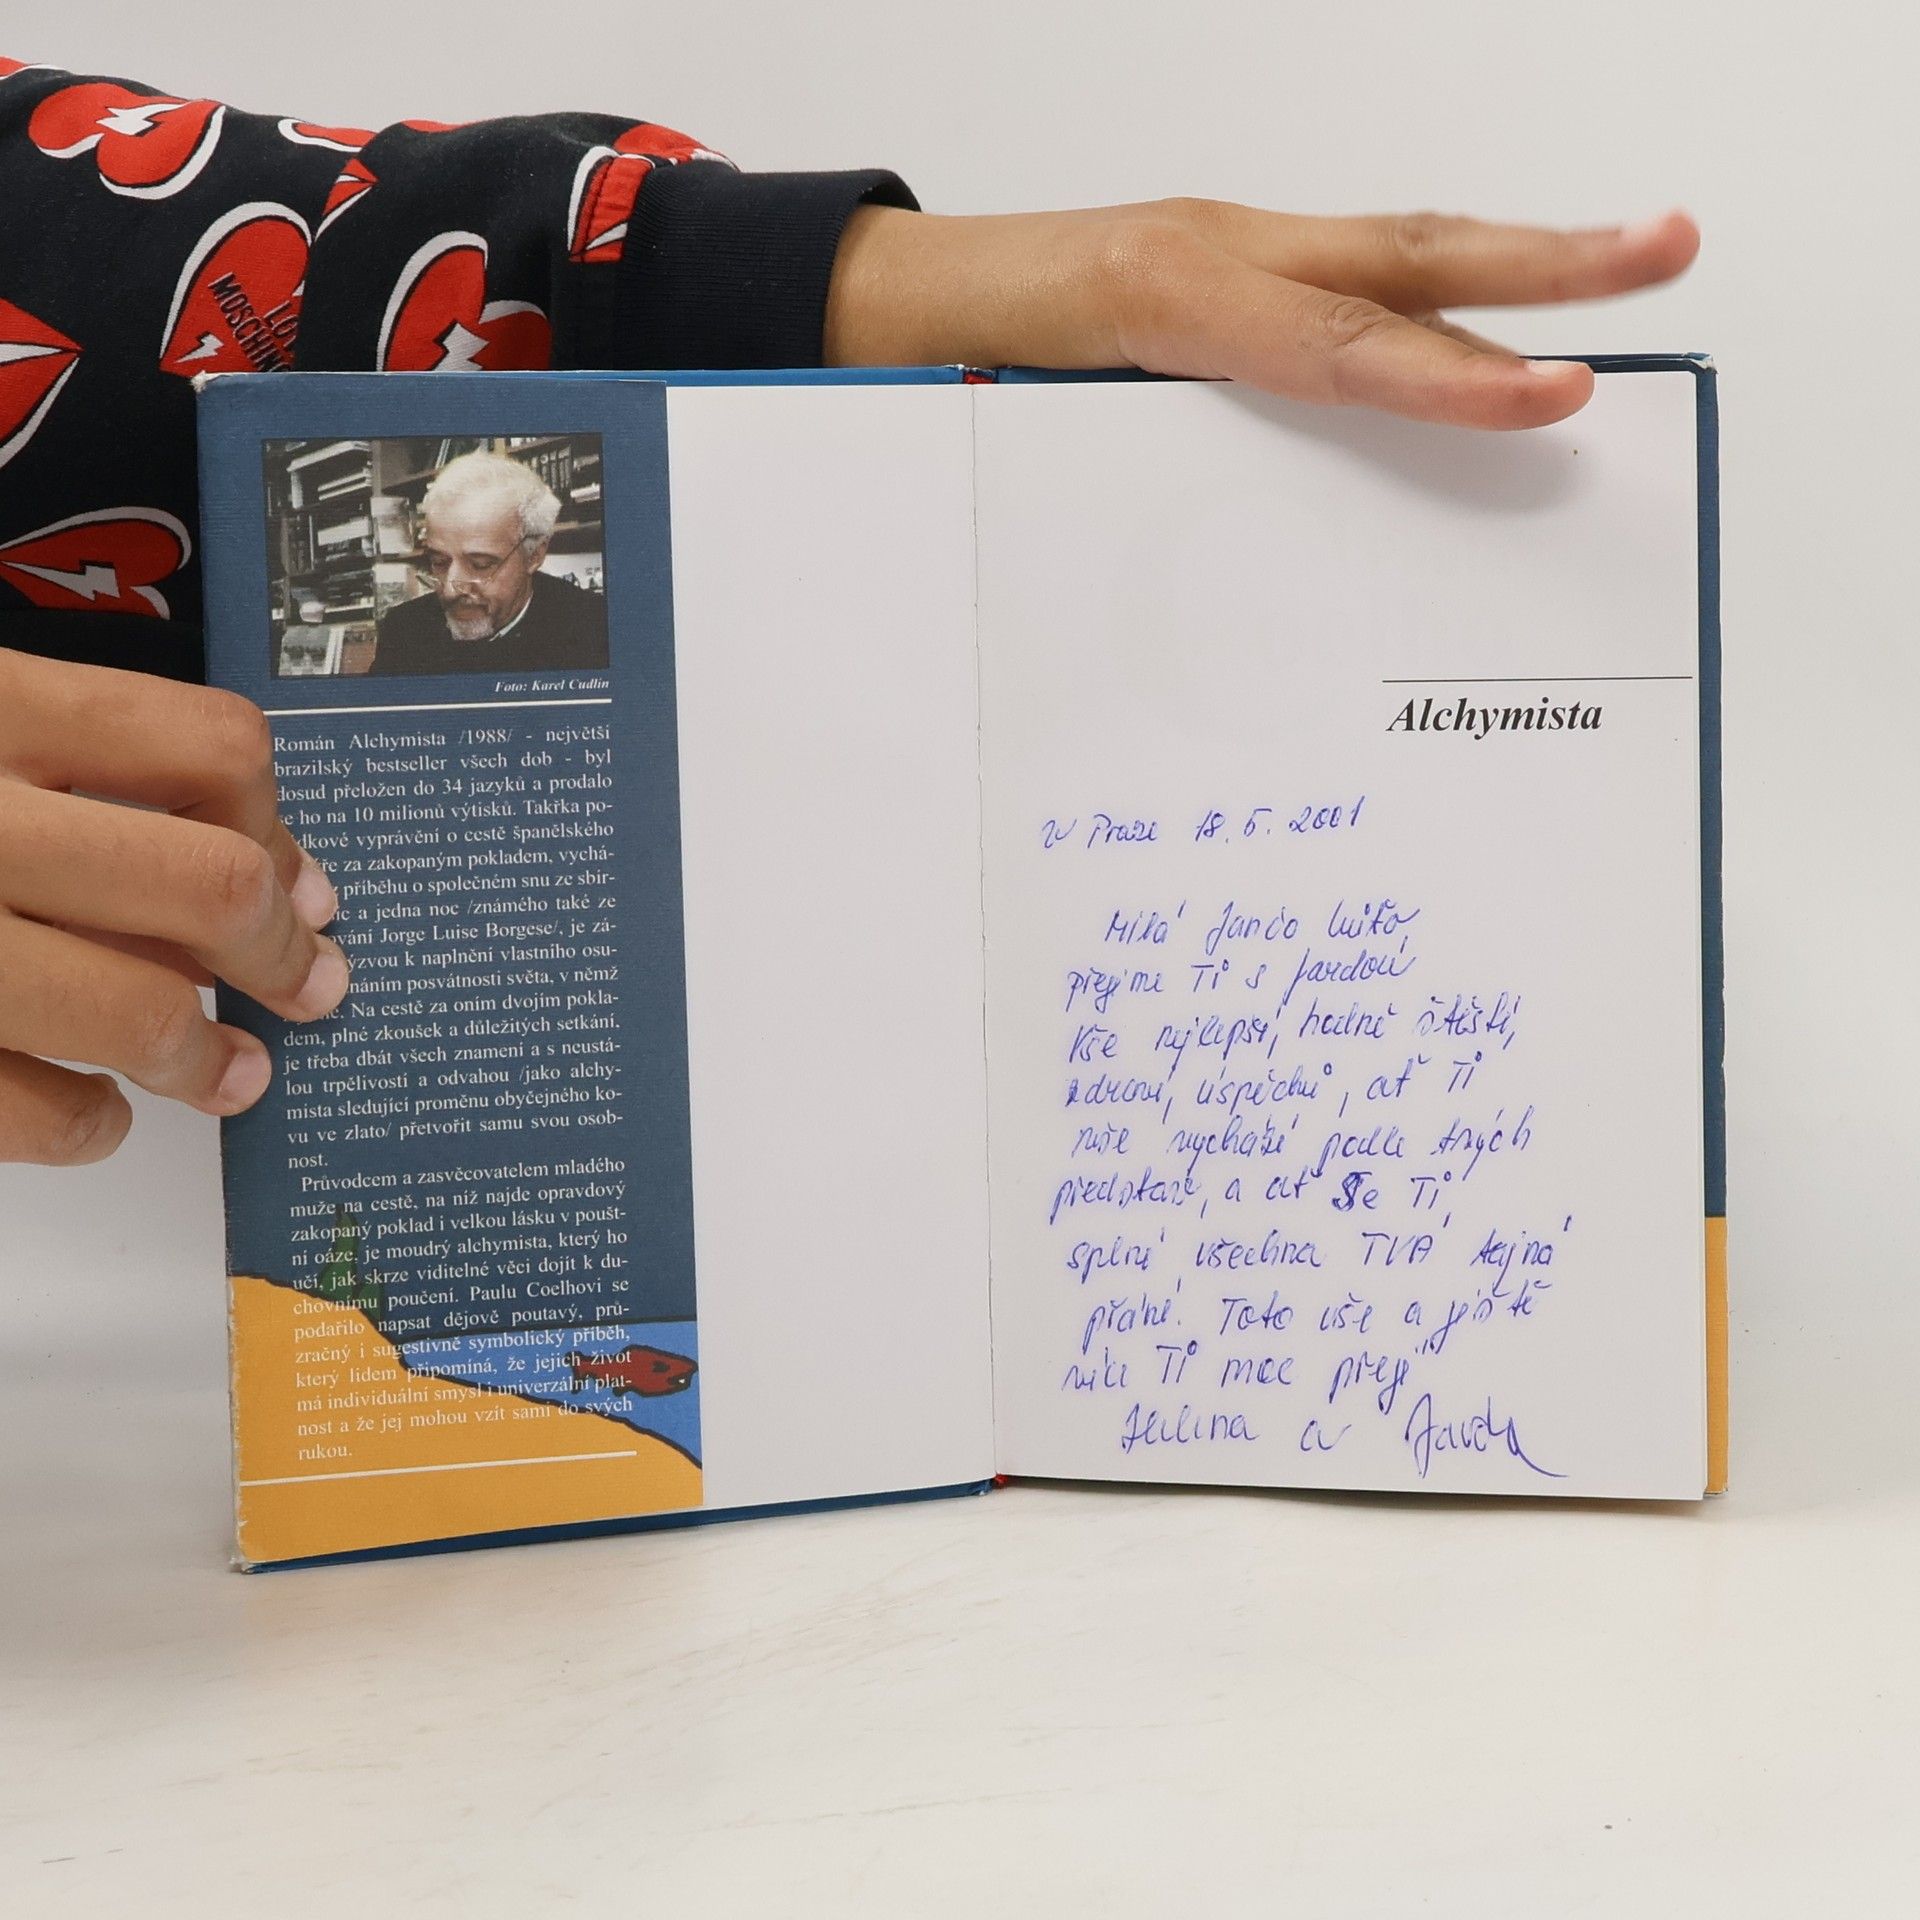 LO
MOSCHINO
Foto: Karel Cudlín
Román Alchymista /1988/ - největší
brazilský bestseller všech dob - byl
dosud přeložen do 34 jazyků a prodalo
se ho na 10 milionů výtisků. Takřka po-
dkové vyprávění o cestě španělského
ře za zakopaným pokladem, vychá-
z příběhu o společném snu ze sbír-
íc a jedna noc /známého také ze
ování Jorge Luise Borgese/, je zá-
ýzvou k naplnění vlastního osu-
náním posvátnosti světa, v němž
Na cestě za oním dvojím pokla-
dem, plné zkoušek a důležitých setkání,
je třeba dbát všech znamení a s neustá-
lou trpělivostí a odvahou /jako alchy-
mista sledující proměnu obyčejného ko-
vu ve zlato/ přetvořit samu svou osob-
nost.
Průvodcem a zasvěcovatelem mladého
muže na cestě, na níž najde opravdový
zakopaný poklad i velkou lásku v poušt-
ní oáze, je moudrý alchymista, který ho
učí, jak skrze viditelné věci dojít k du-
chovnímu poučení. Paulu Coelhovi se
podařilo napsat dějově poutavý, prů-
zračný i sugestivně symbolický příběh,
který lidem připomíná, že jejich život
má individuální smysl i univerzální plat-
nost a že jej mohou vzít sami do svých
rukou.
Alchymista
V Praze 18. 5. 2001
Milá
přejeme Ti s Jardou
vše nejlepší, hodně štěstí,
zdraví, úspěchů, ať Ti
vše vychází podle tvých
představ, a ať Se Ti
splní všechna TVÁ tajná
přání. Toto vše a ještě
více Ti moc přejí
Helena a Jarda